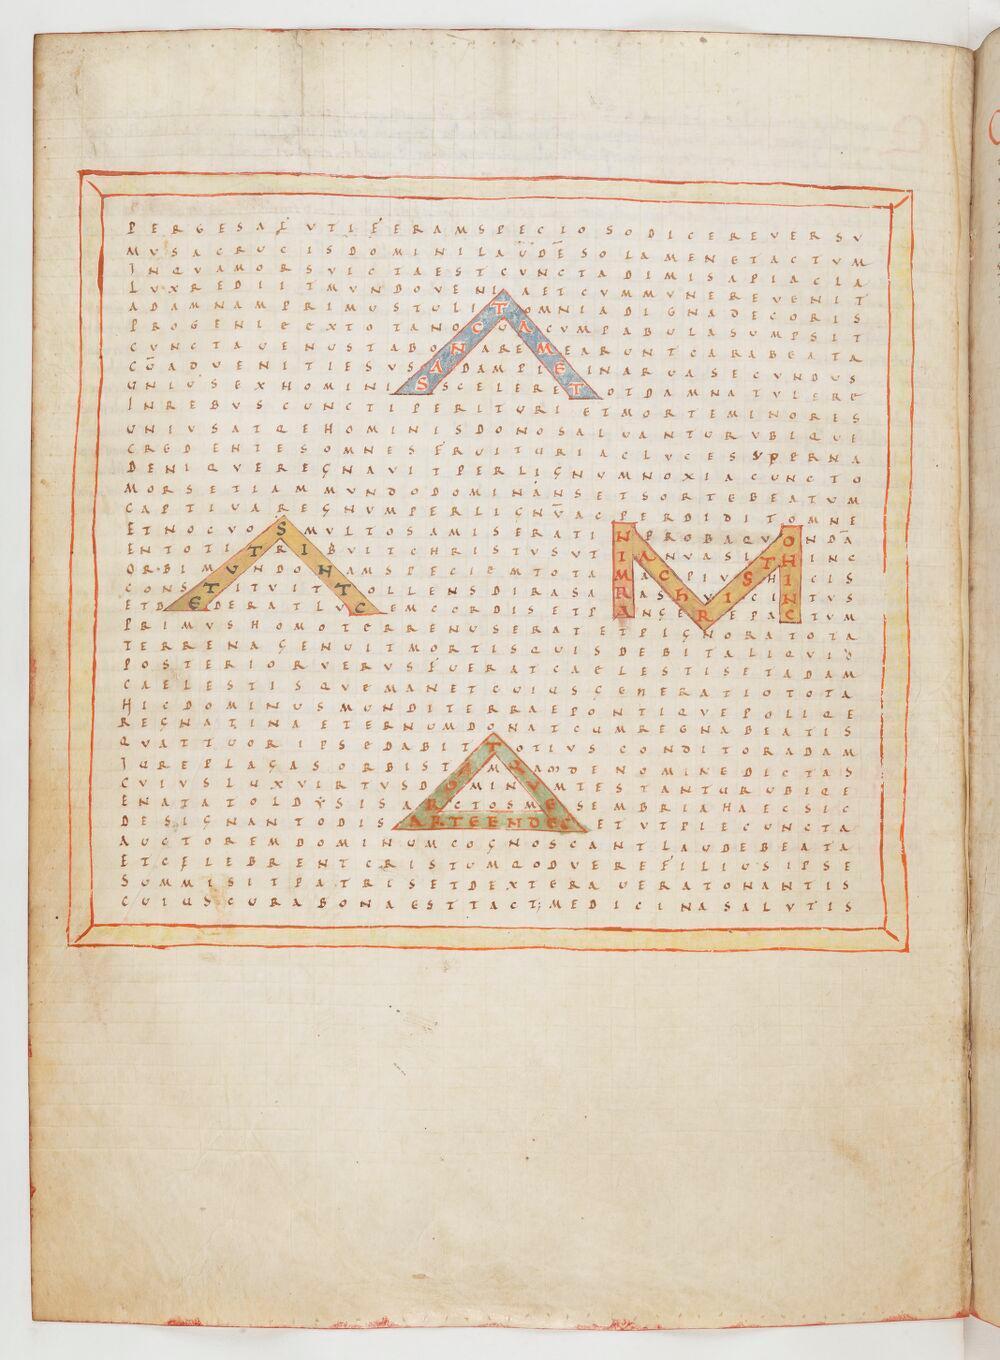 PERGESALVTIFERAMSPECIOSODICEREVERSV
MVSACRUCISDOMINILAUDESOLAMENETACTVM
INQVAMORSVICTAESTCVNCTADIMISAPIACLA
LVXREDIITMVNDOVENIAETCVMMVNEREVENIT
ADAMNAMPRIMUSTULITOMNIADIGNADECORIS
PROGENIEEXTOTANOCUACVMPABULASUMPSIT
CVNCTAUENUSTABONAREMEARUNTCARABEATA
CŪADUENITIESVSADAMPIEINARUASECVNDVS
UNIUSEXHOMINISSCELERETOTDAMNATVLERE
INREBVSCUNCTIPERITURIETMORTEMINORES
UNIVSATQEHOMINISDONOSALUANTURVBIQUE
CREDENTESOMNESFRUITURIACLVCESVPERNA
DENIQVEREGNAVITPERLIGNUMNOXIACUNCTO
MORSETIAMMVNDODOMINANSETSORTEBEATUM
CAPTIVAREGNUMPERLIGNV̄ACPERDIDITOMNE
ETNOCVOSMVLTOSAMISERATINPROBAQVONDA
ENTOTITRIBVITCHRISTVSVTIANVASITHINC
ORBIMUNDONAMSPECIEMTOTAMACPIVSHICIS
CONSTITVITTOLLENSDIRASARAShVICINTVS
ETDEDERATLVCEMCORDISETPANGEREPACTVM
PRIMVSHOMOTERRENUSERATETPIGNORATOTA
TERRENAGENUITMORTISQUISDEBITALIQVID
POSTERIORVERVSFUERATCAELESTISETADAM
CAELESTISQVEMANETCUIUSGENERATIOTOTA
HICDOMINUSMUNDITERRAEPONTIQVEPOLIQE
REGNATINAETERNUMDONATCUMREGNABEATIS
QVATTUORIPSEDABITTOTIVSCONDITORADAM
IUREPLAGASORBISTAMQAMDENOMINEDICTAS
CVIVSLUXVIRTVSDOMINUMTESTANTURUBIQE
ENATATOLDYSISARCTOSMESEMBRIAHAECSIC
DESIGNANTODISARTEENDECETVTPIECUNCTA
AUCTOREMDOMINUMCOGNOSCANTLAUDEBEATA
ETCELEBRENTCRISTUMQODVEREFILIUSIPSE
SUMMISITPATRISETDEXTERAUERATONANTIS
CUIUSCURABONAESTTACT;MEDICINASALVTIS